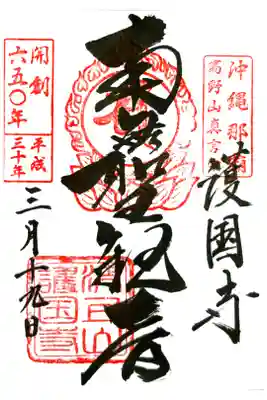 沖縄那覇
高野山真言
護国寺
南無聖観音
開創
六五〇年
平成
三十年
三月十九日